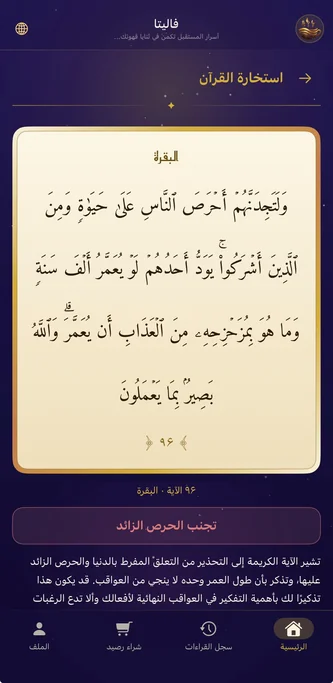 فاليتا
أسرار المستقبل تكمن في ثنايا قهوتك...
استخارة القرآن
البقرة
وَلَتَجِدَنَّهُمْ أَحْرَصَ ٱلنَّاسِ عَلَىٰ حَيَوٰةٍ وَمِنَ
ٱلَّذِينَ أَشْرَكُوا۟ ۚ يَوَدُّ أَحَدُهُمْ لَوْ يُعَمَّرُ أَلْفَ سَنَةٍ
وَمَا هُوَ بِمُزَحْزِحِهِۦ مِنَ ٱلْعَذَابِ أَن يُعَمَّرَ ۗ وَٱللَّهُ
بَصِيرٌۢ بِمَا يَعْمَلُونَ
﴿ ٩٦ ﴾
٩٦ الآية · البقرة
تجنب الحرص الزائد
تشير الآية الكريمة إلى التحذير من التعلق المفرط بالدنيا والحرص الزائد
عليها، وتذكر بأن طول العمر وحده لا ينجي من العواقب. قد يكون هذا
تذكيرًا لك بأهمية التفكير في العواقب النهائية لأفعالك وألا تدع الرغبات
الرئيسية
سجل القراءات
شراء رصيد
الملف